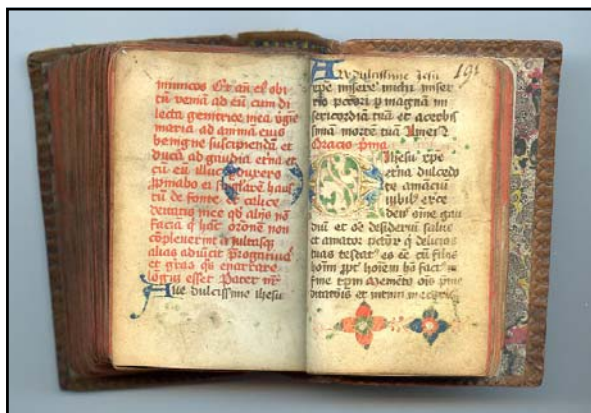 inimicos Et añ el obi
tũ veniã ad eũ cum di
lecta genitrice mea
maria ad animã eius
benigne suscipiendã et
ducã ad gaudia etña et
cũ eũ illuc duxero
ppinabo ei haus
tũ de fonte et calice
deitatis mee qd alijs nõ
faciã q̃ hãc orõnē non
cõpleverint
alias adiicit
et gr̃as q̃s enarrare
lõgũ esset Pater nr̃
Ave dulcissime ihesu
191
Ave dulcissime Jesu
xpē miserē michi miser
rio pccõri p magnã mi
sericordiã tuã et acerbis
simã mortē tuã Amen
Oracio pma
O Ihesu xpe
etña dulcedo
te amãciũ
iubilꝰ exce
dens om̄e gau
diũ et oē desideriũ salus
et amator pctõr̃ q̃ delicias
tuas testatꝰ es eē cũ filijs
hoĩm ppt hoiem hõ factꝰ
fine tpm Memēto